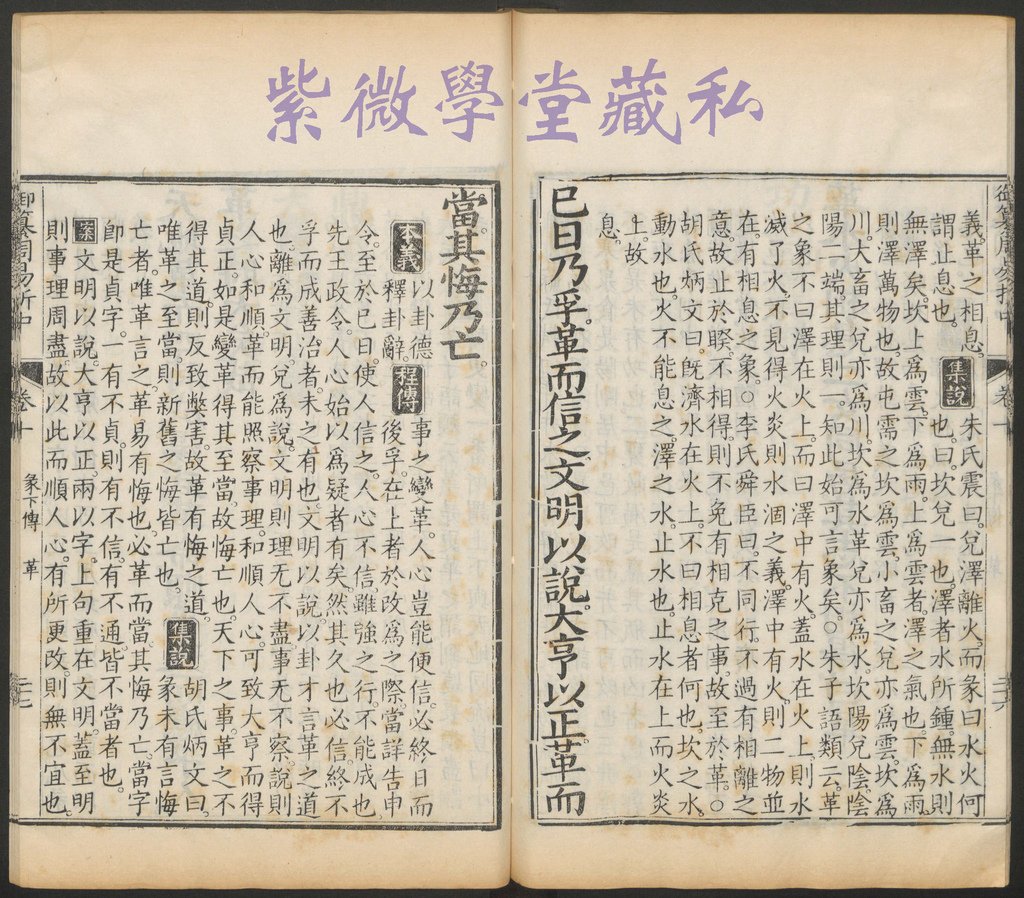 紫微學堂藏私
御纂周易折中
卷十
三六
義革之相息集說朱氏震曰兌澤離火而彖曰水火何
謂止息也也曰坎兌一也澤者水所鍾無水則
無澤矣坎上為雲下為雨上為雲者澤之氣也下為雨
則澤萬物也故屯需之坎為雲小畜之兌亦為雲坎為
川大畜之兌亦為川坎為水革兌亦為水坎陽兌陰陰
陽二端其理則一知此始可言象矣○朱子語類云革
之象不曰澤在火上而曰澤中有火蓋水在火上則水
滅了火不見得火炎則水涸之義澤中有火則二物並
在有相息之象○李氏舜臣曰不同行不過有相離之
意故止於睽不相得則不免有相克之事故至於革○
胡氏炳文曰旣濟水在火上不曰相息者何也坎之水
動水也火不能息之澤之水止水也止水在上而火炎
上故
息
已日乃孚革而信之文明以說大亨以正革而
當其悔乃亡
本義以卦德程傳事之變革人心豈能便信必終日而
釋卦辭後孚在上者於改為之際當詳告申
令至於已日使人信之人心不信雖強之行不能成也
先王政令人心始以為疑者有矣然其久也必信終不
孚而成善治者未之有也文明以說以卦才言革之道
也離為文明兌為說文明則理无不盡事无不察說則
人心和順革而能照察事理和順人心可致大亨而得
貞正如是變革得其至當故悔亡也天下之事革之不
得其道則反致獘害故革有悔之道集說胡氏炳文曰
唯革之至當則新舊之悔皆亡也彖未有言悔
亡者唯革言之革易有悔也必革而當其悔乃亡當字
卽是貞字一有不貞則有不信有不通皆不當者也
案文明以說大亨以正兩以字上句重在文明蓋至明
則事理周盡故以此而順人心有所更改則無不宜也
御纂周易折中
卷十
彖下傳 革
三七